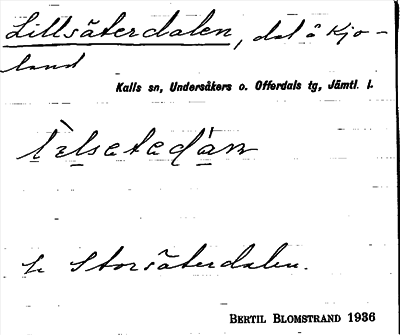 Lillsäterdalen, dal å Kjo-
land
Kalls sn, Undersåkers o. Offerdals tg, Jämtl. l.
Storsäterdalen.
BERTIL BLOMSTRAND 1936